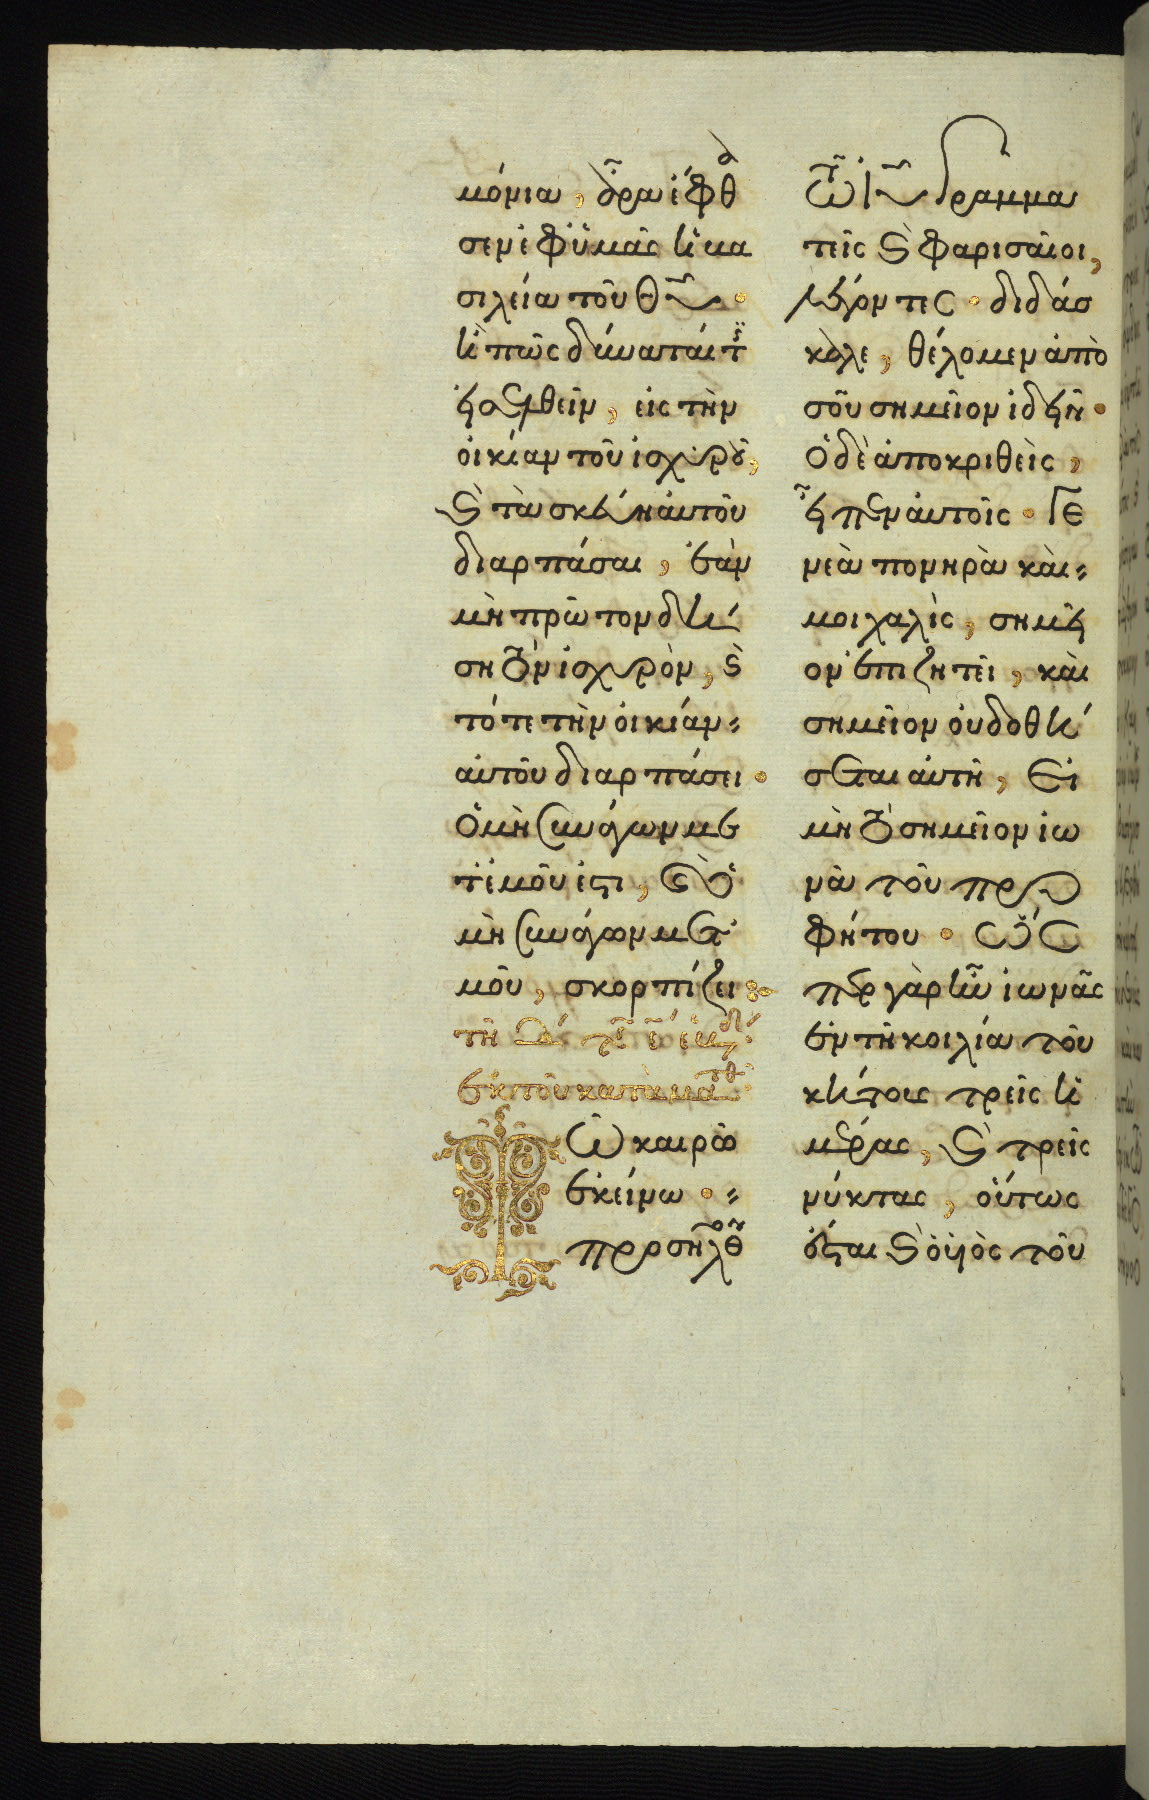 μόνια, ἄρα ἔφθα
σεν ἐφ ὑμᾶς ἡ βα
σιλεία τοῦ θυ.
ἢ πῶς δύναταί τις
εἰσελθεῖν, εἰς τὴν
οἰκίαν τοῦ ἰσχυροῦ,
καὶ τὰ σκεύη αὐτοῦ
διαρπάσαι, ἐὰν
μὴ πρῶτον δή
ση τὸν ἰσχυρὸν, καὶ
τότε τὴν οἰκίαν
αὐτοῦ διαρπάσει.
Ὁ μὴ ὢν με
τ ἐμοῦ κατ ἐμοῦ ἐστι, καὶ ὁ
μὴ συνάγων μετ ἐ
μοῦ, σκορπίζει
τῇ
ἐκ τοῦ κατὰ ματθ
Τῶ καιρῶ
ἐκείνω.
προσῆλθον
τῶ ιυ γραμμα
τεῖς καὶ φαρισαῖοι,
λέγοντες. διδάσ
καλε, θέλομεν ἀπὸ
σοῦ σημεῖον ἰδεῖν.
Ὁ δὲ ἀποκριθεὶς,
εἶπεν αὐτοῖς. Γε
νεὰ πονηρὰ καὶ
μοιχαλὶς, σημεῖ
ον ἐπιζητεῖ, καὶ
σημεῖον οὐ δοθή
σεται αὐτῆ, Εἰ
μὴ τὸ σημεῖον ἰω
νᾶ τοῦ προ
φήτου. Ὥσ
περ γὰρ ἦν ἰωνᾶς
ἐν τῆ κοιλία τοῦ
κήτους τρεῖς ἡ
μέρας, καὶ τρεῖς
νύκτας, οὕτως
ἔσται καὶ ὁ υἱὸς τοῦ